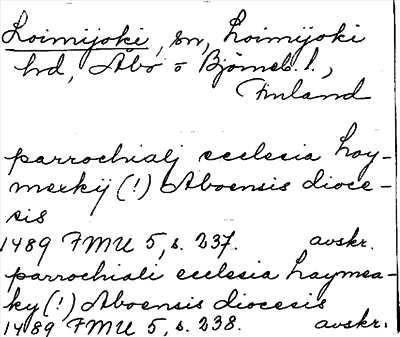 Loimijoki, sn, Loimijoki
hd, Åbo o Björneb. l.,
Finland
parrochialj ecclesia Loy-
mexkij (!) Aboensis dioce-
sis
1489 FMU 5, s. 237. avskr.
parrochiali ecclesia Laymea-
ky (!) Aboensis diocesis
1489 FMU 5, s. 238. avskr.